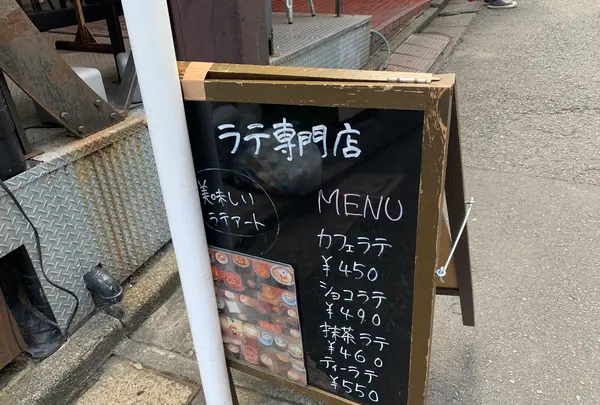 ラテ専門店
美味しい
ラテアート
MENU
カフェラテ
¥450
ショコラテ
¥490
抹茶ラテ
¥460
ティーラテ
¥550